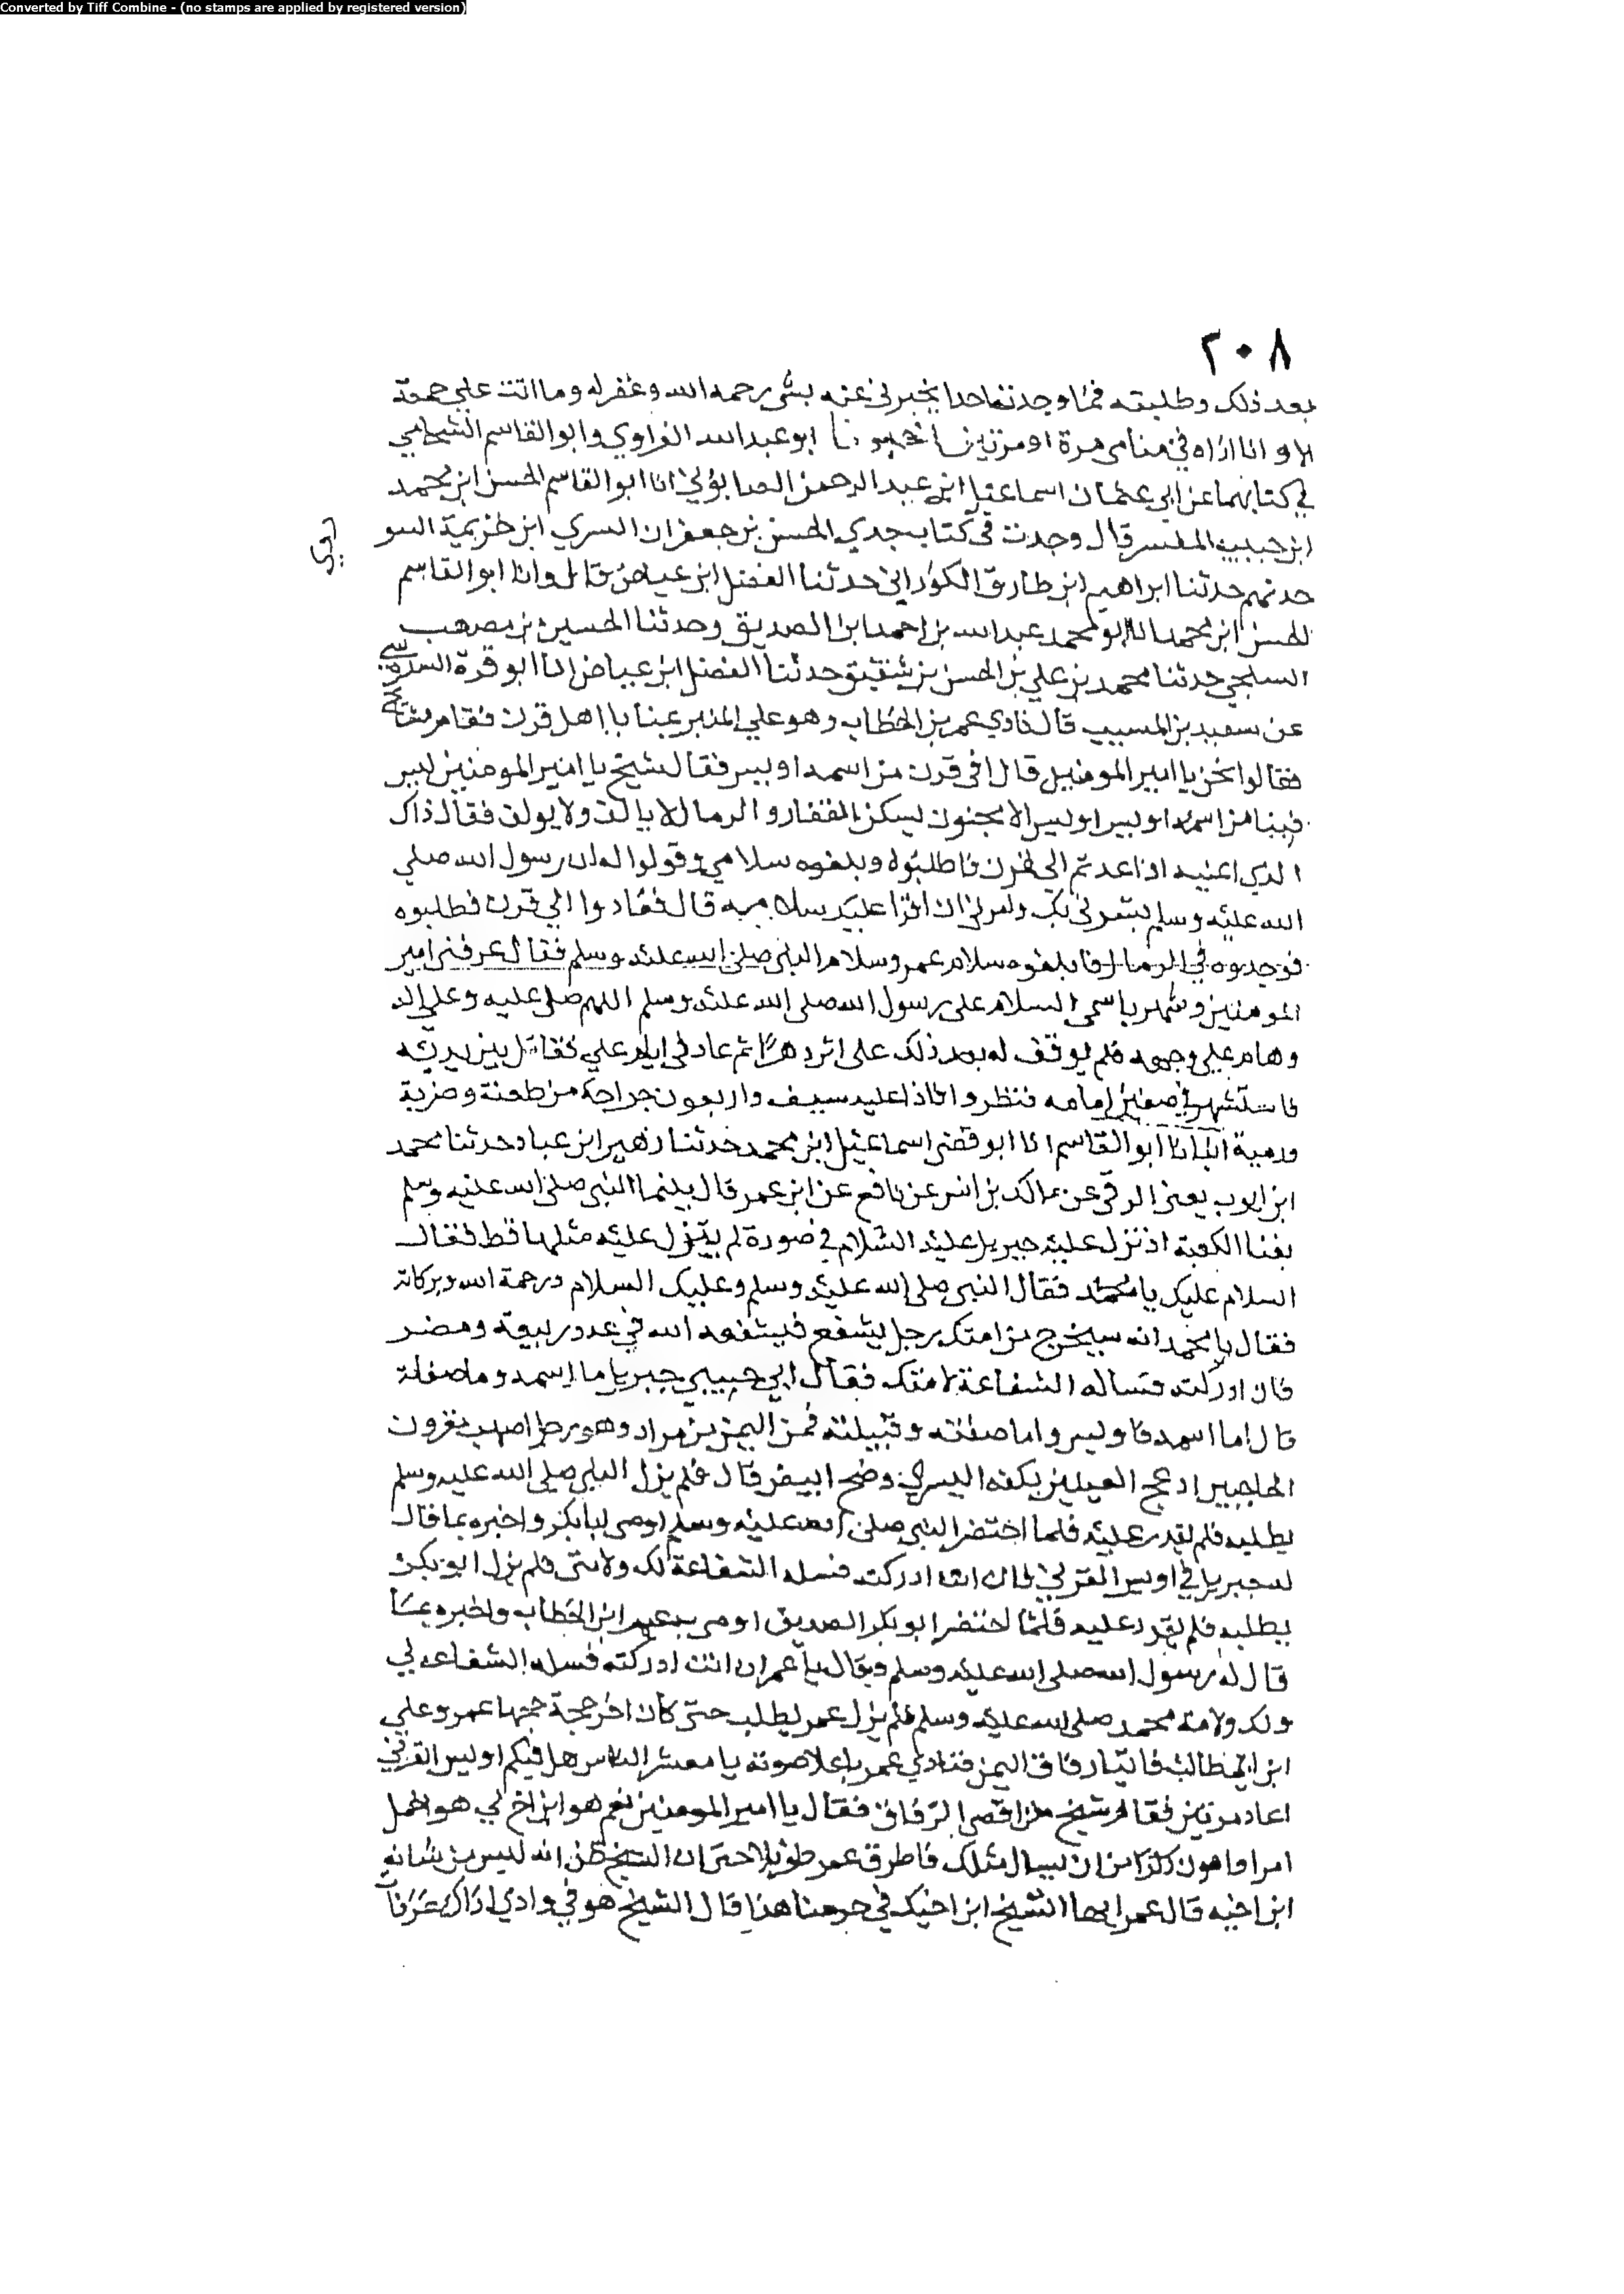 Converted by Tiff Combine - (no stamps are applied by registered version)
٢٠٨
بعد ذلك وطلبته فما وجدت احدا يخبرني عنه بشي رحمه الله وغفر له وما اتت علي جمعة
الا و انا اراه في منامي مرة او مرتين اخبرنا ابو عبد الله الفراوي وابو القاسم الشحامي
في كتابهما عن ابي عثمان اسماعيل ابن عبد الرحمن الصابوني انا ابو القاسم الحسن ابن محمد
ابن حبيب المفسر قال وجدت في كتاب جدي الحسن بن جعفر ان السري ابن خزيمة
حدثهم حدثنا ابراهيم ابن طارق حدثنا الفضل ابن عياض قال وانا ابو القاسم
الحسن ابن محمد انا ابو محمد عبد الله بن احمد ابن الصديق وحدثنا الحسين بن مصعب
السلجي حدثنا محمد بن علي بن الحسن بن شقيق حدثنا الفضل ابن عياض انا ابو قرة
عن سعيد بن المسيب قال نادي عمر بن الخطاب وهو علي المنبر يا اهل قرن فقام
فقالوا نحن يا امير المومنين قال افي قرن من اسمه اويس فقال شيخ يا امير المومنين ليس
فينا من اسمه اويس الا مجنون يسكن القفار و الرمال لا يالف ولا يولف فقال ذاك
الذي اعنيه اذا عدتم الى قرن فاطلبوه وبلغوه سلامي وقولوا له ان رسول الله صلي
الله عليه وسلم بشرني بك وامرني ان اقرا عليك سلامه قال فعادوا الي قرن فطلبوه
فوجدوه في الرمال فابلغوه سلام عمر وسلام النبي صلى الله عليه وسلم فقال عرفني امير
المومنين وشهر باسمي السلام على رسول الله صلى الله عليه وسلم اللهم صل عليه وعلي اله
وهام علي وجهه فلم يوقف له بعد ذلك على اثر دهرا ثم عاد في ايام علي فقاتل بين يديه
فاستشهد في صفين امامه فنظروا فاذا عليه نيف واربعون جراحة من طعنة وضربة
ورمية انبانا ابو القاسم انا ابو اسماعيل ابن محمد حدثنا زهير ابن عباد حدثنا محمد
ابن ايوب يعني الرقي عن مالك بن انس عن نافع عن ابن عمر قال بينما النبي صلى الله عليه وسلم
بفنا الكعبة اذ نزل عليه جبريل عليه السلام في صورة لم ينزل عليه مثلها قط فقال
السلام عليك يا محمد فقال النبي صلى الله عليه وسلم وعليك السلام ورحمة الله وبركاته
فقال يا محمد انه سيخرج من امتك رجل يشفع فيشفعه الله في عدد ربيعة ومضر
فان ادركته فتساله الشفاعة لامتك فقال اي حبيبي جبريل ما اسمه وما صفته
قال اما اسمه فاويس واما صفته وقبيلته فمن اليمن من مراد وهو رجل اصهب مقرون
الحاجبين ادعج العينين بكفه اليسرى وضح ابيض قال فلم يزل النبي صلى الله عليه وسلم
يطلبه فلم يقدر عليه فلما احتضر النبي صلى الله عليه وسلم اوصى ابا بكر واخبره بما قال
له جبريل في اويس القرني فان انت ادركته فسله الشفاعة لك ولامتي فلم يزل ابو بكر
يطلبه فلم يقدر عليه فلما احتضر ابو بكر الصديق اوصى به عمر ابن الخطاب واخبره بما
قال له رسول الله صلى الله عليه وسلم وقال يا عمر ان انت ادركته فسله الشفاعه لي
ولك ولامة محمد صلى الله عليه وسلم فلم يزل عمر يطلب حتى كان اخر حجة حجها عمر وعلي
ابن ابي طالب فاتيا رفاق اليمن فنادي عمر باعلا صوته يا معشر الناس هل فيكم اويس القرني
اعاد مرتين فقام شيخ من اقصى الرفاق فقال يا امير المومنين نعم هو ابن اخ لي هو اخمل
امرا واهون ذكرا من ان يسال مثلك فاطرق عمر طويلا حتى ان الشيخ ظن انه ليس من شانه
ابن اخيه قال عمر ايها الشيخ ابن اخيك في حرمنا هذا قال الشيخ هو في وادي اراك عرفات